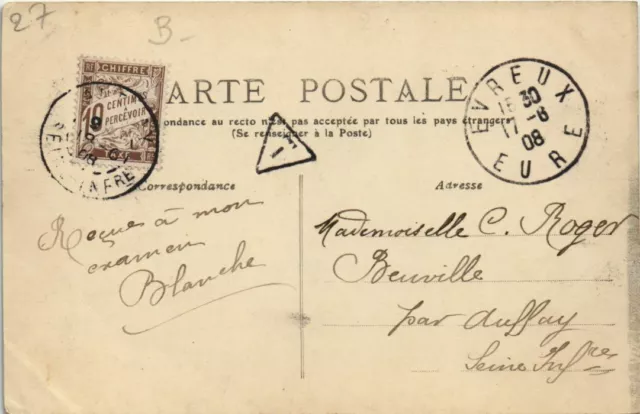 27
B-
CHIFFRE
10 CENTIMES
A PERCEVOIR
CARTE POSTALE
La Correspondance au recto n'est pas acceptée par tous les pays étrangers
(Se renseigner à la Poste)
T
EVREUX
17-8
08
EURE
Correspondance
Adresse
Reçue à mon
examen
Blanche
Mademoiselle C. Roger
Beuville
par Auffay
Seine Infre